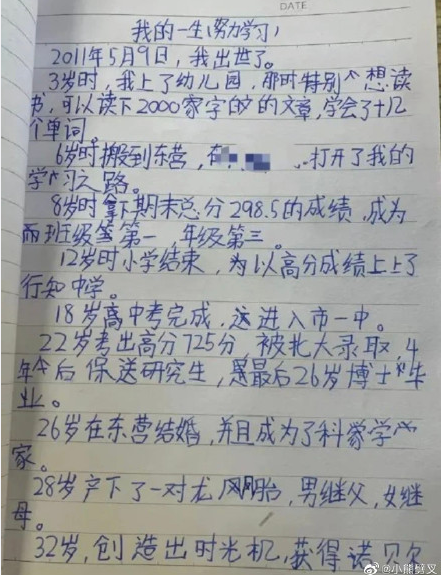 DATE
我的一生(努力学习)
2011年5月9日，我出世了。
3岁时，我上了幼儿园，那时特别想读
书，可以读下2000字的文章，学会了十几
个单词。
6岁时搬到东营，打开了我的
学习之路。
8岁时拿下期末总分298.5的成绩，成为
班级第一，年级第三。
12岁时小学结束，以高分成绩上上了
行知中学。
18岁中考完成，进入市一中。
22岁考出高分725分，被北大录取，4
年后保送研究生，最后26岁博士毕
业。
26岁在东营结婚，并且成为了科学
家。
28岁产下了一对龙凤胎，男继父，女继
母。
32岁，创造出时光机，获得诺贝尔
@小熊剪叉